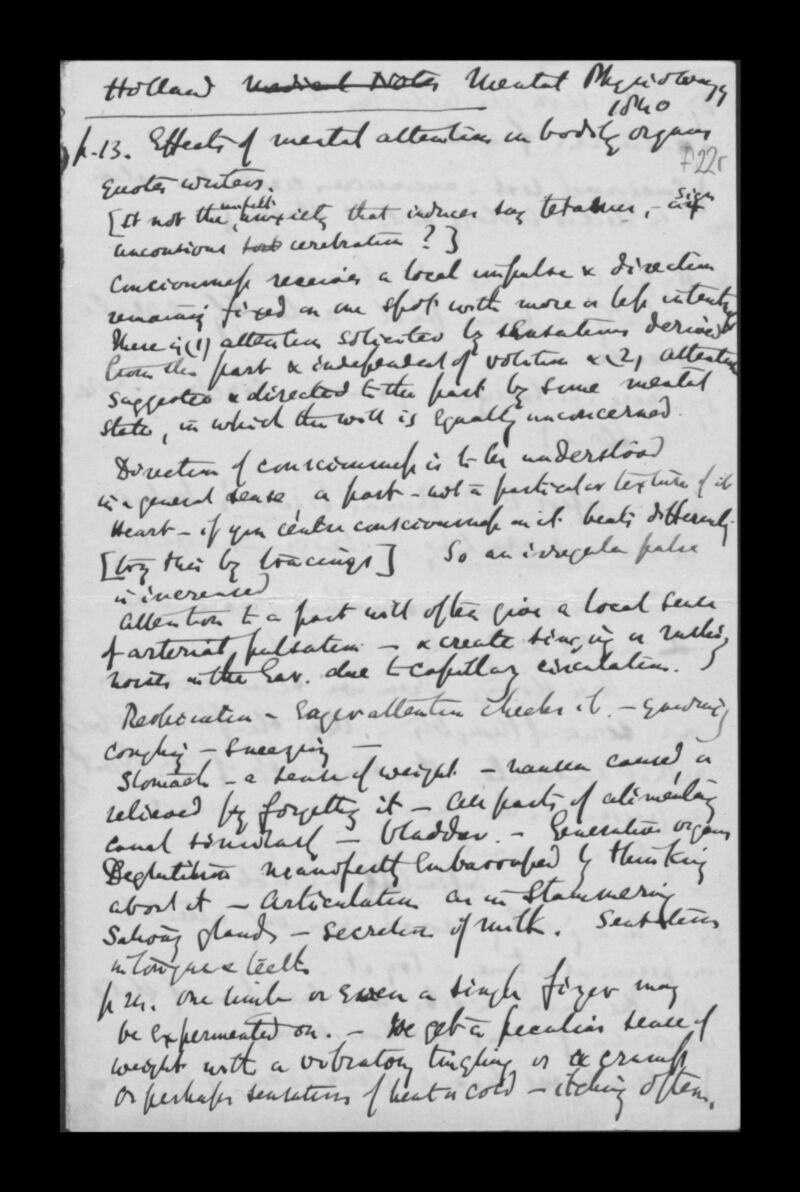 Holland Medical Notes Mental Physiology
1840
p.13. Effects of mental attention on bodily organs
F22r
quotes writers.
[It not the unfelt anxiety that induces say tetanus, - sign
unconsious cerebration ? ]
Consciousness receives a local impulse & direction
remaining fixed on one spot with more or less intensity
There is (1) attention solicited by sensations derived
from the part & independent of volition & (2) attention
suggested & directed to the part by some mental
state, in which the will is equally unconcerned.
Direction of consciousness is to be understood
in a general sense a part - not a particular texture of it
Heart - if you centre consciousness on it beats differently
[try this by tracings] So an irregular pulse
is increased
Attention to a part will often give a local sense
of arterial pulsation - & create singing or rushing
noises in the Ear. due to capillary circulation.
Respiration - Eager attention checks it. - yawning
coughing - sneezing -
Stomach - a sense of weight - nausea caused, or
relieved by forgetting it - all parts of alimentary
canal similarly - bladder. - Generative organs
Deglutition manifestly embarrassed by thinking
about it - Articulation as in Stammering
Salivary glands - secretion of milk. Sensations
in tongue & teeth
p 24. One limb or even a single finger may
be experimented on. - We get a peculiar sense of
weight with a vibratory tingling or cramp
or perhaps sensations of heat or cold - itching often.